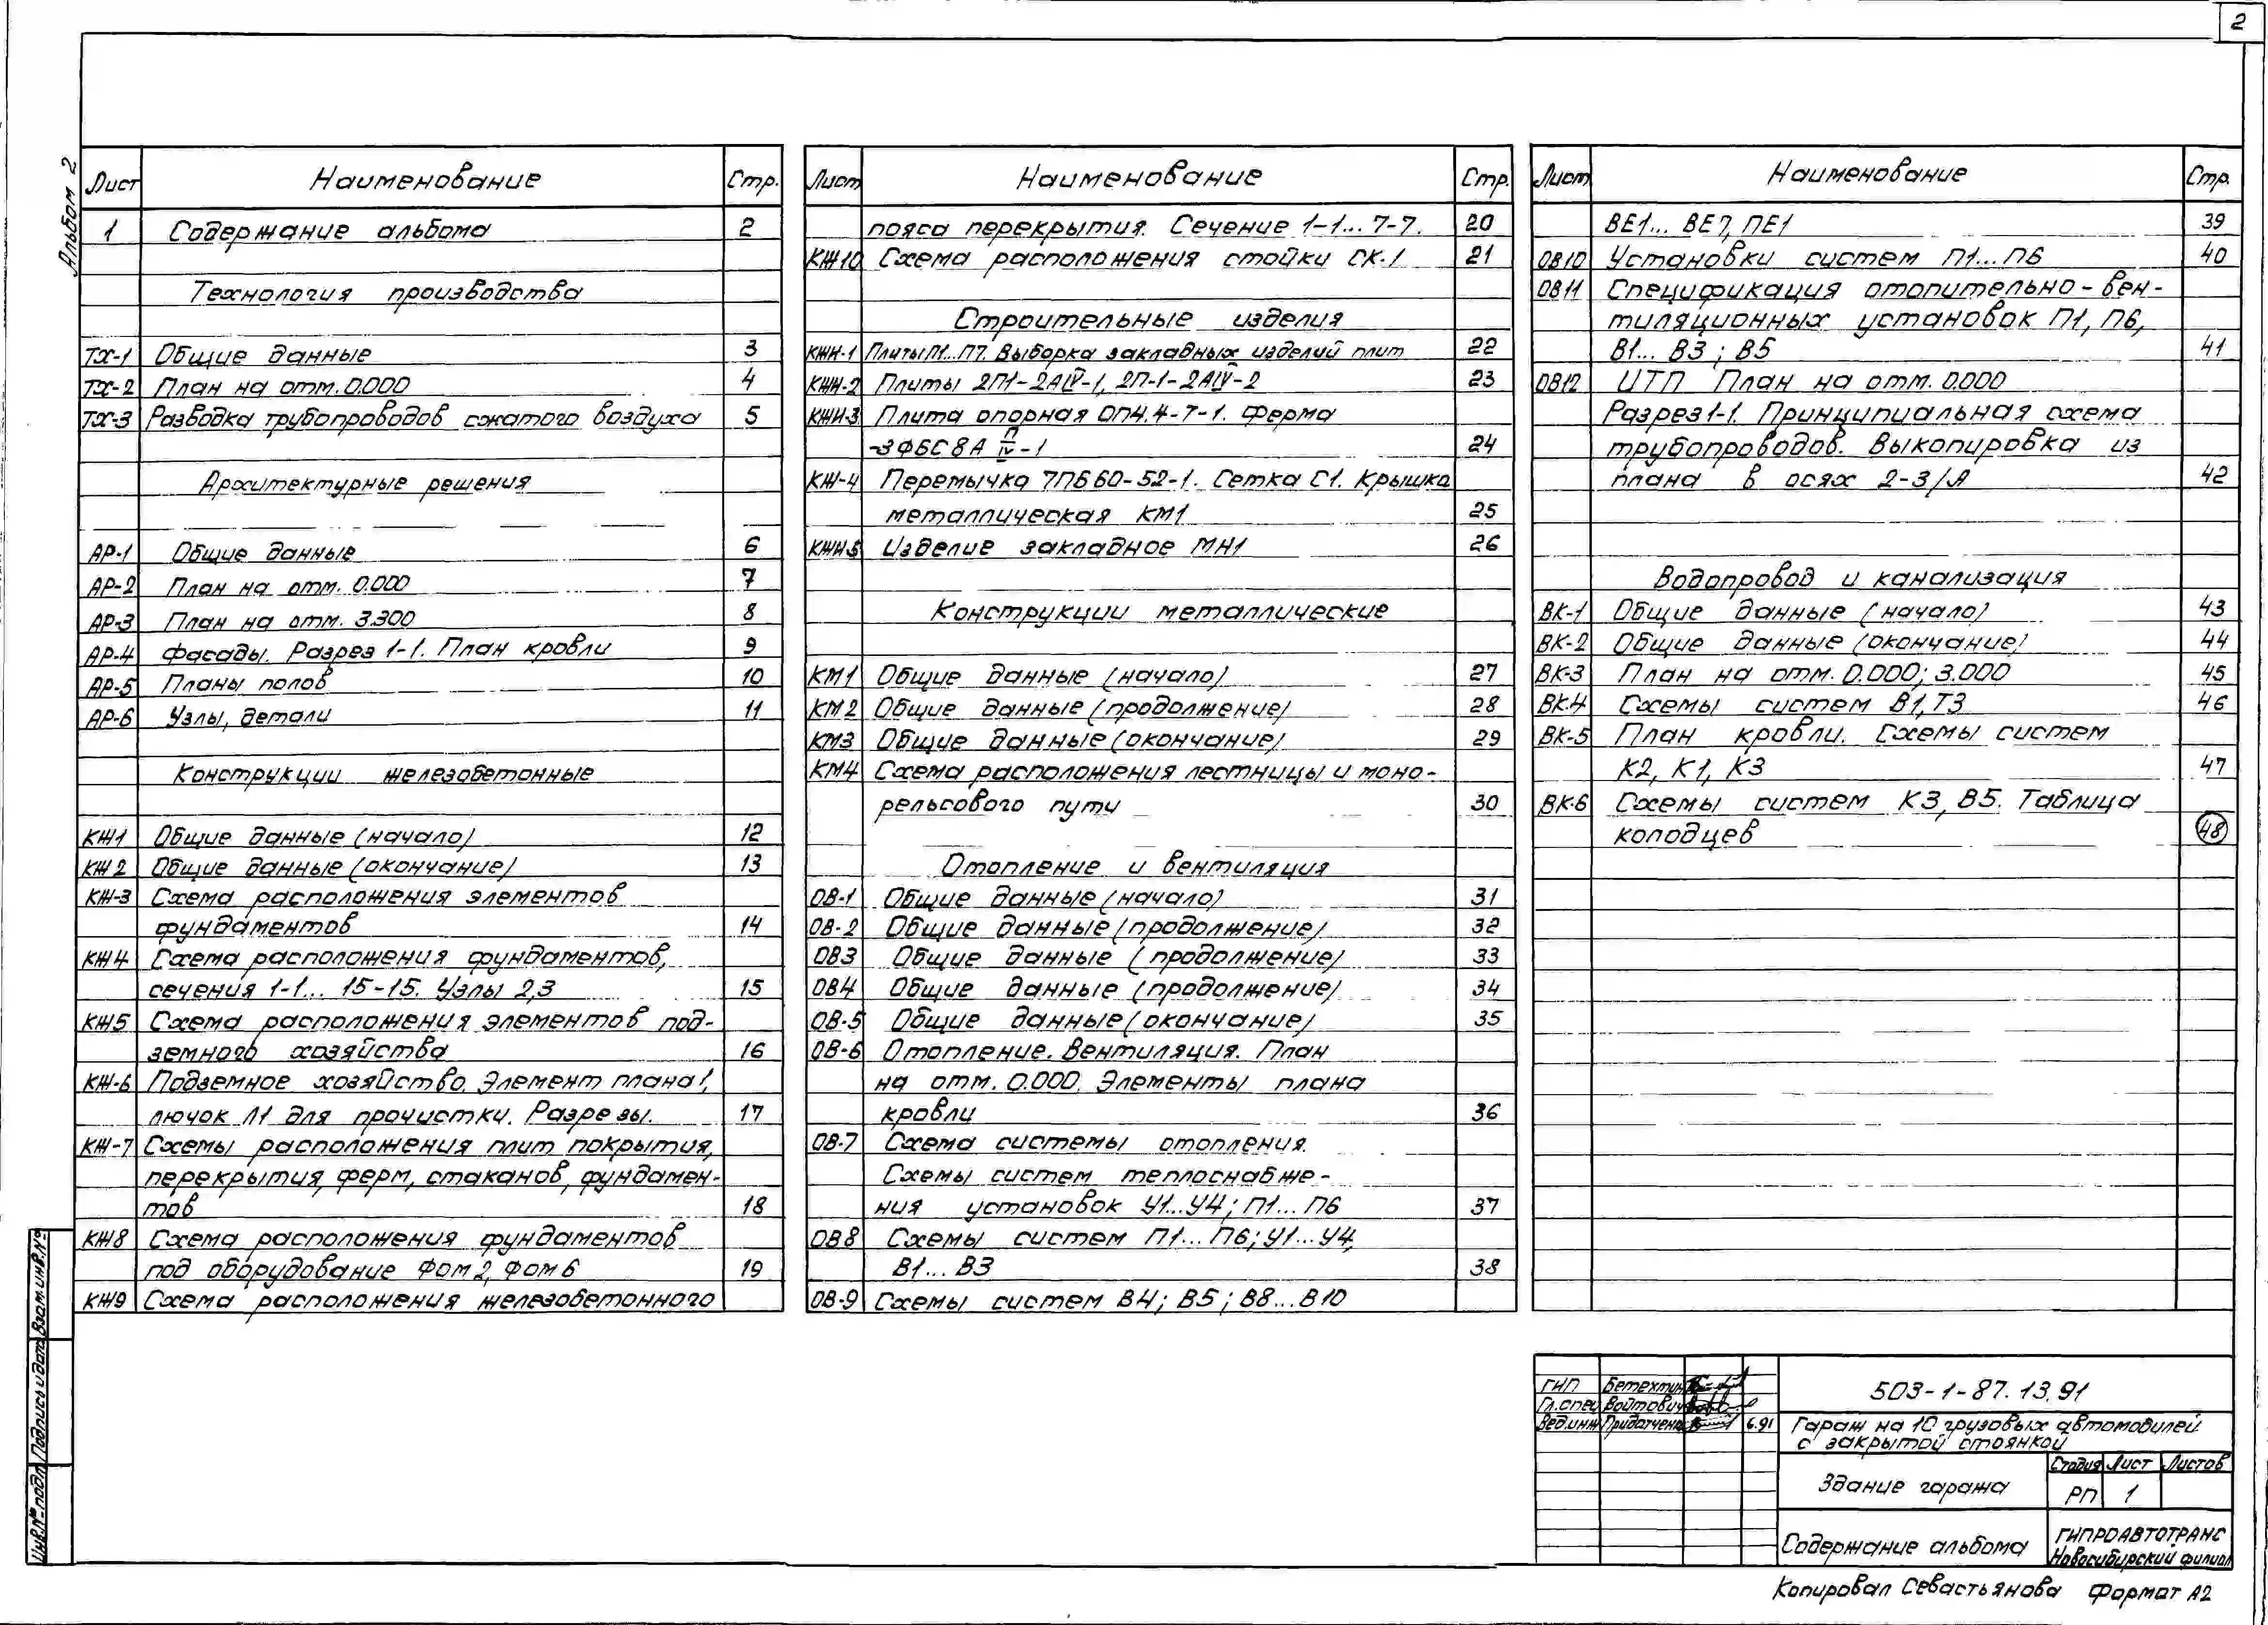 2
Альбом 2
Лист Наименование Стр.
1 Содержание альбома 2
Технология производства
ТХ-1 Общие данные 3
ТХ-2 План на отм. 0.000 4
ТХ-3 Разводка трубопроводов сжатого воздуха 5
Архитектурные решения
АР-1 Общие данные 6
АР-2 План на отм. 0.000 7
АР-3 План на отм. 3.300 8
АР-4 Фасады. Разрез 1-1. План кровли 9
АР-5 Планы полов 10
АР-6 Узлы, детали 11
Конструкции железобетонные
КЖ1 Общие данные (начало) 12
КЖ2 Общие данные (окончание) 13
КЖ-3 Схема расположения элементов
фундаментов 14
КЖ4 Схема расположения фундаментов,
сечения 1-1... 15-15. Узлы 2,3 15
КЖ5 Схема расположения элементов под-
земного хозяйства 16
КЖ-6 Подземное хозяйство. Элемент плана 1,
лючок Л1 для прочистки. Разрезы. 17
КЖ-7 Схемы расположения плит покрытия,
перекрытия, ферм, стаканов, фундамен-
тов 18
КЖ8 Схема расположения фундаментов
под оборудование Фом 2, Фом 6 19
КЖ9 Схема расположения железобетонного
Лист Наименование Стр.
пояса перекрытия. Сечение 1-1... 7-7. 20
КЖ10 Схема расположения стойки СК-1 21
Строительные изделия
КЖИ-1 Плиты П1...П7. Выборка закладных изделий плит 22
КЖИ-2 Плиты 2П1-2АIV-1, 2П-1-2АIV-2 23
КЖИ-3 Плита опорная ОП4.4-7-1. Ферма
-3ФБС8А П/IV -1 24
КЖ-4 Перемычка 7ПБ60-52-1. Сетка С1. Крышка
металлическая КМ1 25
КЖИ-5 Изделие закладное МН1 26
Конструкции металлические
КМ1 Общие данные (начало) 27
КМ2 Общие данные (продолжение) 28
КМ3 Общие данные (окончание) 29
КМ4 Схема расположения лестницы и моно-
рельсового пути 30
Отопление и вентиляция
ОВ-1 Общие данные (начало) 31
ОВ-2 Общие данные (продолжение) 32
ОВ3 Общие данные (продолжение) 33
ОВ4 Общие данные (продолжение) 34
ОВ-5 Общие данные (окончание) 35
ОВ-6 Отопление. Вентиляция. План
на отм. 0.000. Элементы плана
кровли 36
ОВ-7 Схема системы отопления.
Схемы систем теплоснабже-
ния установок У1...У4; П1... П6 37
ОВ8 Схемы систем П1... П6; У1...У4,
В1... В3 38
ОВ-9 Схемы систем В4; В5; В8...В10
Лист Наименование Стр.
ВЕ1... ВЕ7, ПЕ1 39
ОВ10 Установки систем П1...П6 40
ОВ11 Спецификация отопительно-вен-
тиляционных установок П1, П6,
В1... В3; В5 41
ОВ12 ИТП План на отм. 0.000
Разрез 1-1. Принципиальная схема
трубопроводов. Выкопировка из
плана в осях 2-3/А 42
Водопровод и канализация
ВК-1 Общие данные (начало) 43
ВК-2 Общие данные (окончание) 44
ВК-3 План на отм. 0.000; 3.000 45
ВК-4 Схемы систем В1, Т3 46
ВК-5 План кровли. Схемы систем
К2, К1, К3 47
ВК-6 Схемы систем К3, В5. Таблица
колодцев 48
ГИП Бетехтин
Гл.спец Войтович
Вед.инж Придатченко 6.91
503-1-87.13.91
Гараж на 10 грузовых автомобилей
с закрытой стоянкой
Здание гаража
Стадия Лист Листов
РП 1
Содержание альбома
ГИПРОАВТОТРАНС
Новосибирский филиал
Копировал Севастьянова Формат А2
Инв.№ подл. Подпись и дата Взам.инв.№